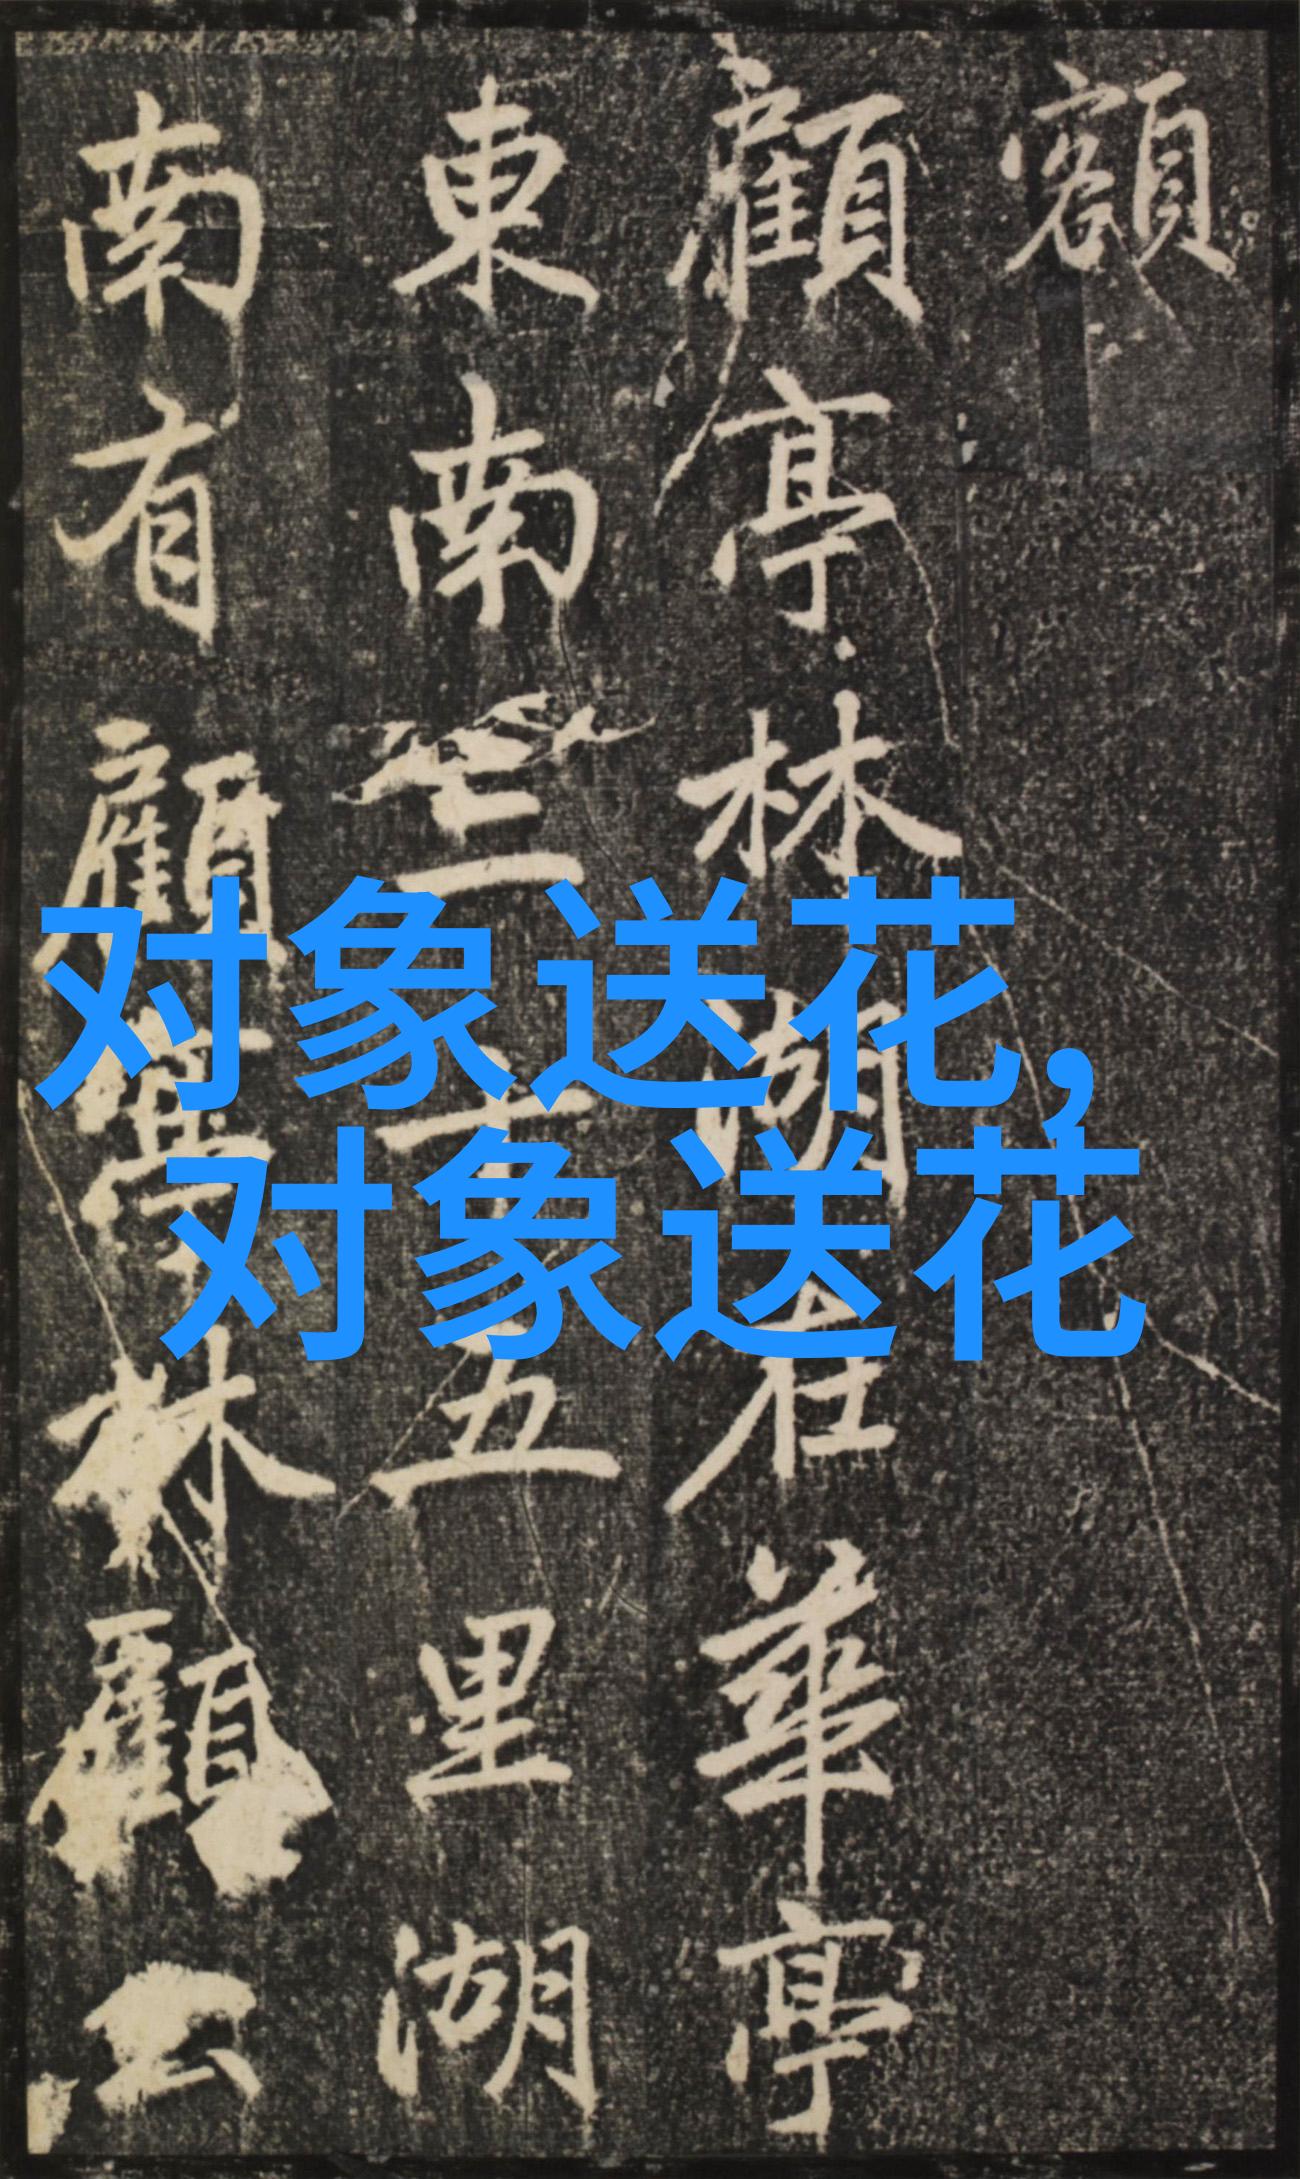 額
顧亭林湖在華亭
東南三十五里湖
南有顧亭林顧公
对象送花,
对象送花